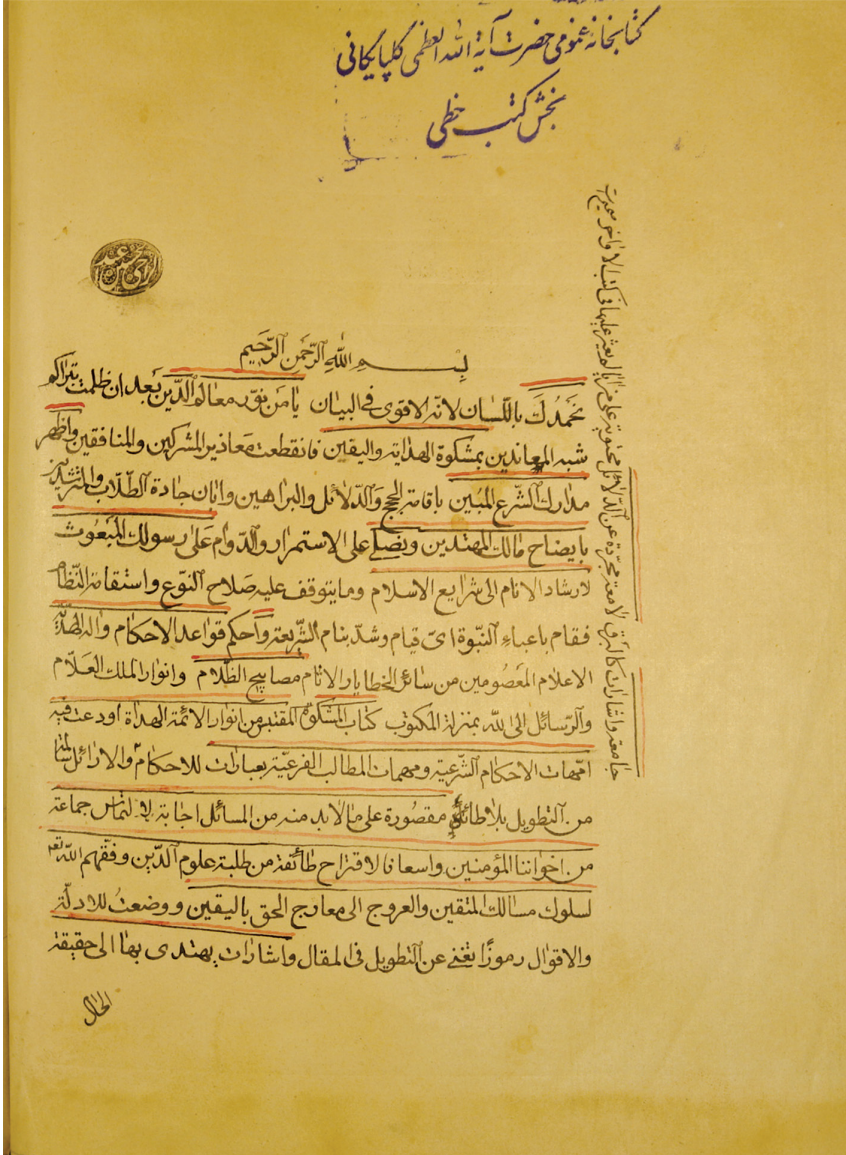 کتابخانه عمومی حضرت آیة الله العظمی گلپایگانی
بخش کتب خطی
بسم الله الرحمن الرحیم
نحمدك باللسان لانه الاقوی فی البیان یا من نور معالم الدین بعد ان ظلمت بتراکم
شبه المعاندین بمشکوة الهدایة والیقین فانقطعت معاذیر المشرکین والمنافقین واظهر
مدارك الشرع المبین باقامة الحجج والدلائل والبراهین وابان جادة الطلاب والمسترشدین
بایضاح مسالك المهتدین ونصلی علی الاستمرار والدوام علی رسولك المبعوث
لارشاد الانام الی شرایع الاسلام وما یتوقف علیه صلاح النوع واستقامة النظام
فقام باعباء النبوة ای قیام وشد بنام الشریعة واحکم قواعد الاحکام واله الهداة
الاعلام المعصومین من سائر الخطایا والاثام مصابیح الظلام وانوار الملك العلام
والرسائل الی الله بمنزلة المکتوب کتاب المشکوة المقتبس من انوار الائمة الهداة اودعت فیه
امهات الاحکام الشرعیة ومهمات المطالب الفرعیة بعبارات للاحکام
من التطویل بلا طائل مقصورة علی ما لابد منه من المسائل اجابة لالتماس جماعة
من اخواننا المؤمنین واسعافا لاقتراح طائفة من طلبة علوم الدین وفقهم الله تعم
لسلوك مسالك المتقین والعروج الی معارج الحق بالیقین ووضعت للادلة
والاقوال رموزا تغنی عن التطویل فی المقال واشارات یهتدی بها الی حقیقة
الحال
جامعة واشارات کالبرق لامعة مجردة عن الدلائل محتویة علی